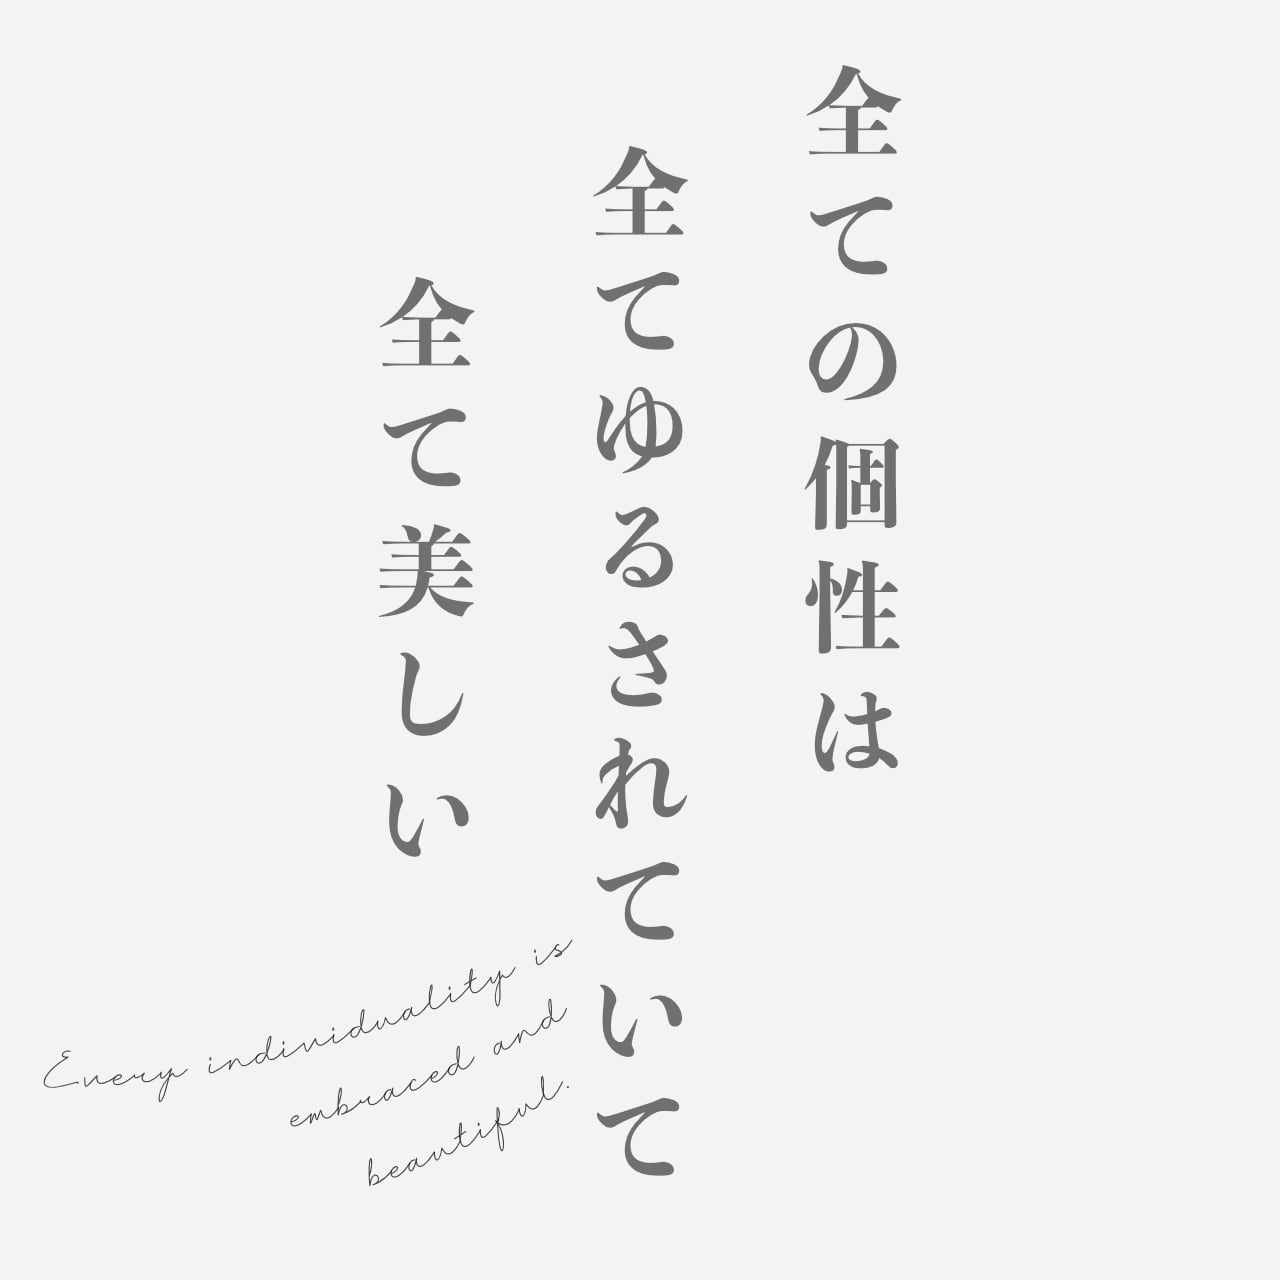 全ての個性は
全てゆるされていて
全て美しい
Every individuality is
embraced and
beautiful.